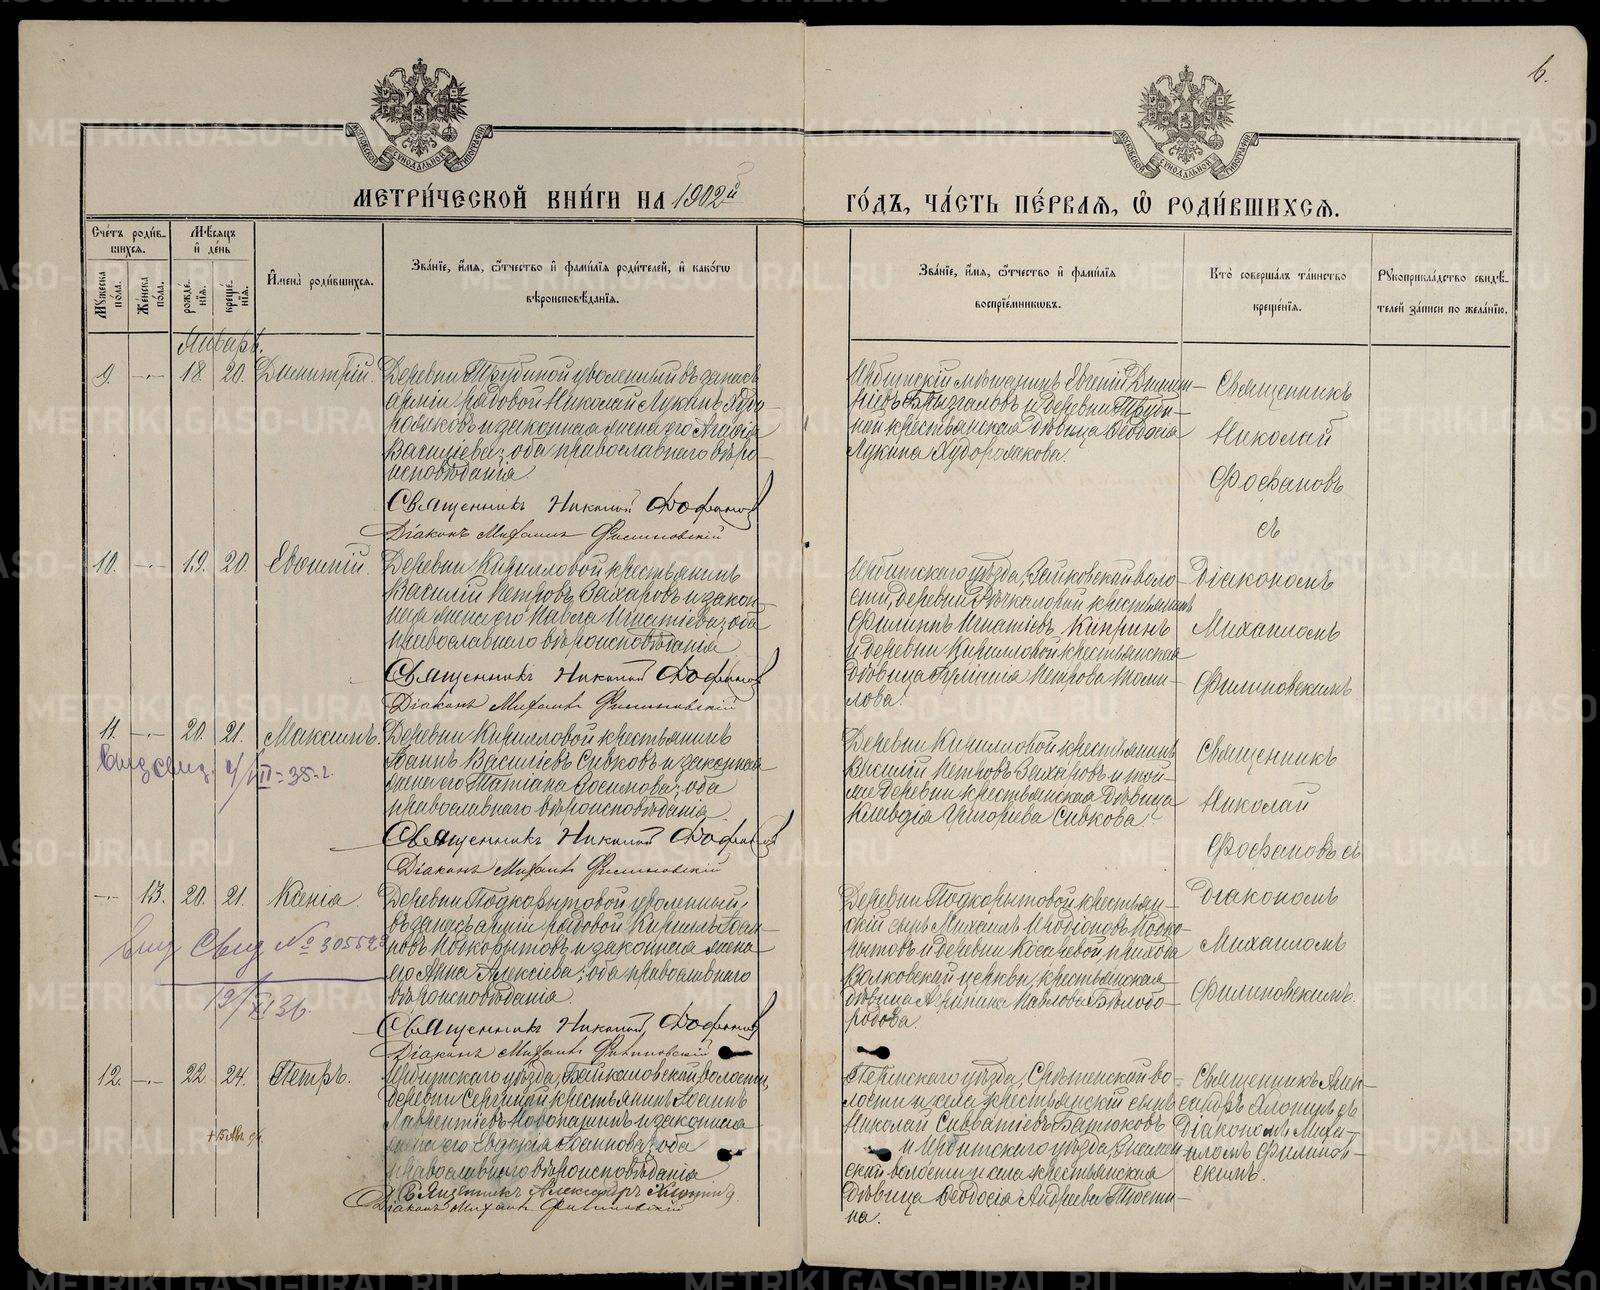 6.
МЕТРИ́ЧЕСКОЙ КНИ́ГИ НА 1902й
ГО́ДЪ, ЧА́СТЬ ПЕ́РВАЯ, Ѡ РОДИ́ВШИХСЯ.
Сче́тъ роди́в-
шихся.
Мѣ́сяцъ
и де́нь
Му́жеска
по́ла.
Же́нска
по́ла.
рожде́-
нія.
креще́-
нія.
И҆мена̀ роди́вшихся.
Зва́нїе, и҆́мя, ѻ҆́тчество и҆ фами́лїя роди́телей, и҆ како́гѡ
вѣроисповѣ́данїя.
Зва́нїе, и҆́мя, ѻ҆́тчество и҆ фами́лїя
воспрїе́мниковъ.
Кто̀ соверша́лъ та́инство
креще́нїя.
Рꙋкоприкла́дство свидѣ́-
телей за́писи по жела́нїю.
Январь.
9. -·- 18. 20. Димитрій.
Деревни Трубиной уволенный въ запасъ
арміи рядовой Николай Лукинъ Худо-
рожковъ и законная жена его Агафія
Васильева; оба православнаго вѣро-
исповѣданія.
Священникъ Николай Фофановъ
Діаконъ Михаилъ Филиновскій
Ирбитскій мѣщанинъ Евгеній Димит-
ріевъ Брызгаловъ и деревни Труби-
ной крестьянская дѣвица Ѳеодосія
Лукина Худорожкова.
Священникъ
Николай
Фофановъ
съ
10. -·- 19. 20. Евѳимій.
Деревни Кирилловой крестьянинъ
Василій Петровъ Захаровъ и закон-
ная жена его Павла Игнатіева; оба
православнаго вѣроисповѣданія.
Священникъ Николай Фофановъ
Діаконъ Михаилъ Филиновскій
Ирбитскаго уѣзда, Зайковской воло-
сти, деревни Рѣчкаловой крестьянинъ
Филиппъ Игнатіевъ Кипринъ
и деревни Кирилловой крестьянская
дѣвица Іуліанія Петрова Томи-
лова.
Діакономъ
Михаиломъ
Филиновскимъ
11. -·- 20. 21. Максимъ.
Деревни Кирилловой крестьянинъ
Іоаннъ Василіевъ Сивковъ и законная
жена его Татіана Зосимова; оба
православнаго вѣроисповѣданія.
Священникъ Николай Фофановъ
Діаконъ Михаилъ Филиновскій
Деревни Кирилловой крестьянинъ
Василій Петровъ Захаровъ и той-
же деревни крестьянская дѣвица
Клавдія Григоріева Сивкова.
Священникъ
Николай
Фофановъ съ
-·- 13. 20. 21. Ксенія.
Выд Свид № 305528
Деревни Подкорытовой уволенный
въ запасъ арміи рядовой Кириллъ Іоан-
новъ Подкорытовъ и законная жена
его Анна Алексіева; оба православнаго
вѣроисповѣданія.
Священникъ Николай Фофановъ
Діаконъ Михаилъ Филиновскій
Деревни Подкорытовой крестьян-
скій сынъ Михаилъ Иродіоновъ Подко-
рытовъ и деревни Косаревой, прихода
Волковской церкви, крестьянская
дѣвица Агрипина Павлова Бѣлобо-
родова.
Діакономъ
Михаиломъ
Филиновскимъ.
12. -·- 22. 24. Петръ.
Ирбитскаго уѣзда, Байкаловской волости,
деревни Серединной крестьянинъ Іоаннъ
Лаврентіевъ Новопашинъ и законная
жена его Евдокія Іоаннова; оба
православнаго вѣроисповѣданія
Священникъ Александръ Хлопинъ
Діаконъ Михаилъ Филиновскій
Пермскаго уѣзда, Срѣтенской во-
лости и села крестьянскій сынъ
Николай Савватіевъ Батюковъ
и Ирбитскаго уѣзда, Знамен-
ской волости и села крестьянская
дѣвица Ѳеодосія Андреева Прости-
на.
Священникъ Алек-
сандръ Хлопинъ съ
Діакономъ Миха-
иломъ Филинов-
скимъ.
METRIKI.GASO-URAL.RU